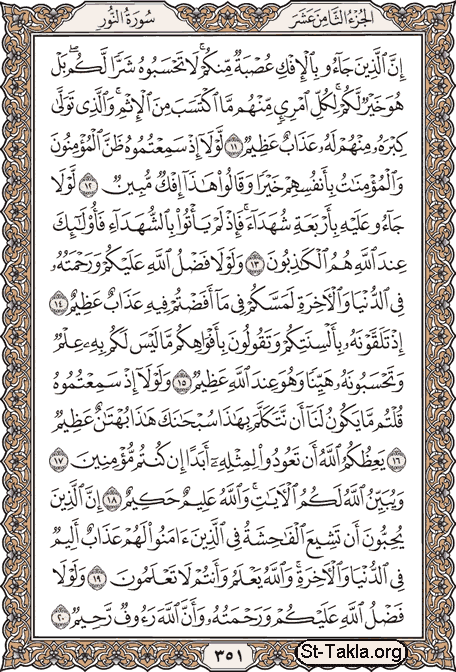 الجزء الثامن عشر
سورة النور
إِنَّ الَّذِينَ جَاءُو بِالْإِفْكِ عُصْبَةٌ مِّنكُمْ ۚ لَا تَحْسَبُوهُ شَرًّا لَّكُم ۖ بَلْ
هُوَ خَيْرٌ لَّكُمْ ۚ لِكُلِّ امْرِئٍ مِّنْهُم مَّا اكْتَسَبَ مِنَ الْإِثْمِ ۚ وَالَّذِي تَوَلَّىٰ
كِبْرَهُ مِنْهُمْ لَهُ عَذَابٌ عَظِيمٌ ١١ لَّوْلَا إِذْ سَمِعْتُمُوهُ ظَنَّ الْمُؤْمِنُونَ
وَالْمُؤْمِنَاتُ بِأَنفُسِهِمْ خَيْرًا وَقَالُوا هَٰذَا إِفْكٌ مُّبِينٌ ١٢ لَّوْلَا
جَاءُو عَلَيْهِ بِأَرْبَعَةِ شُهَدَاءَ ۚ فَإِذْ لَمْ يَأْتُوا بِالشُّهَدَاءِ فَأُولَٰئِكَ
عِندَ اللَّهِ هُمُ الْكَاذِبُونَ ١٣ وَلَوْلَا فَضْلُ اللَّهِ عَلَيْكُمْ وَرَحْمَتُهُ
فِي الدُّنْيَا وَالْآخِرَةِ لَمَسَّكُمْ فِي مَا أَفَضْتُمْ فِيهِ عَذَابٌ عَظِيمٌ ١٤
إِذْ تَلَقَّوْنَهُ بِأَلْسِنَتِكُمْ وَتَقُولُونَ بِأَفْوَاهِكُم مَّا لَيْسَ لَكُم بِهِ عِلْمٌ
وَتَحْسَبُونَهُ هَيِّنًا وَهُوَ عِندَ اللَّهِ عَظِيمٌ ١٥ وَلَوْلَا إِذْ سَمِعْتُمُوهُ
قُلْتُم مَّا يَكُونُ لَنَا أَن نَّتَكَلَّمَ بِهَٰذَا سُبْحَانَكَ هَٰذَا بُهْتَانٌ عَظِيمٌ
١٦ يَعِظُكُمُ اللَّهُ أَن تَعُودُوا لِمِثْلِهِ أَبَدًا إِن كُنتُم مُّؤْمِنِينَ ١٧
وَيُبَيِّنُ اللَّهُ لَكُمُ الْآيَاتِ ۚ وَاللَّهُ عَلِيمٌ حَكِيمٌ ١٨ إِنَّ الَّذِينَ
يُحِبُّونَ أَن تَشِيعَ الْفَاحِشَةُ فِي الَّذِينَ آمَنُوا لَهُمْ عَذَابٌ أَلِيمٌ
فِي الدُّنْيَا وَالْآخِرَةِ ۚ وَاللَّهُ يَعْلَمُ وَأَنتُمْ لَا تَعْلَمُونَ ١٩ وَلَوْلَا
فَضْلُ اللَّهِ عَلَيْكُمْ وَرَحْمَتُهُ وَأَنَّ اللَّهَ رَءُوفٌ رَّحِيمٌ ٢٠
٣٥١
St-Takla.org